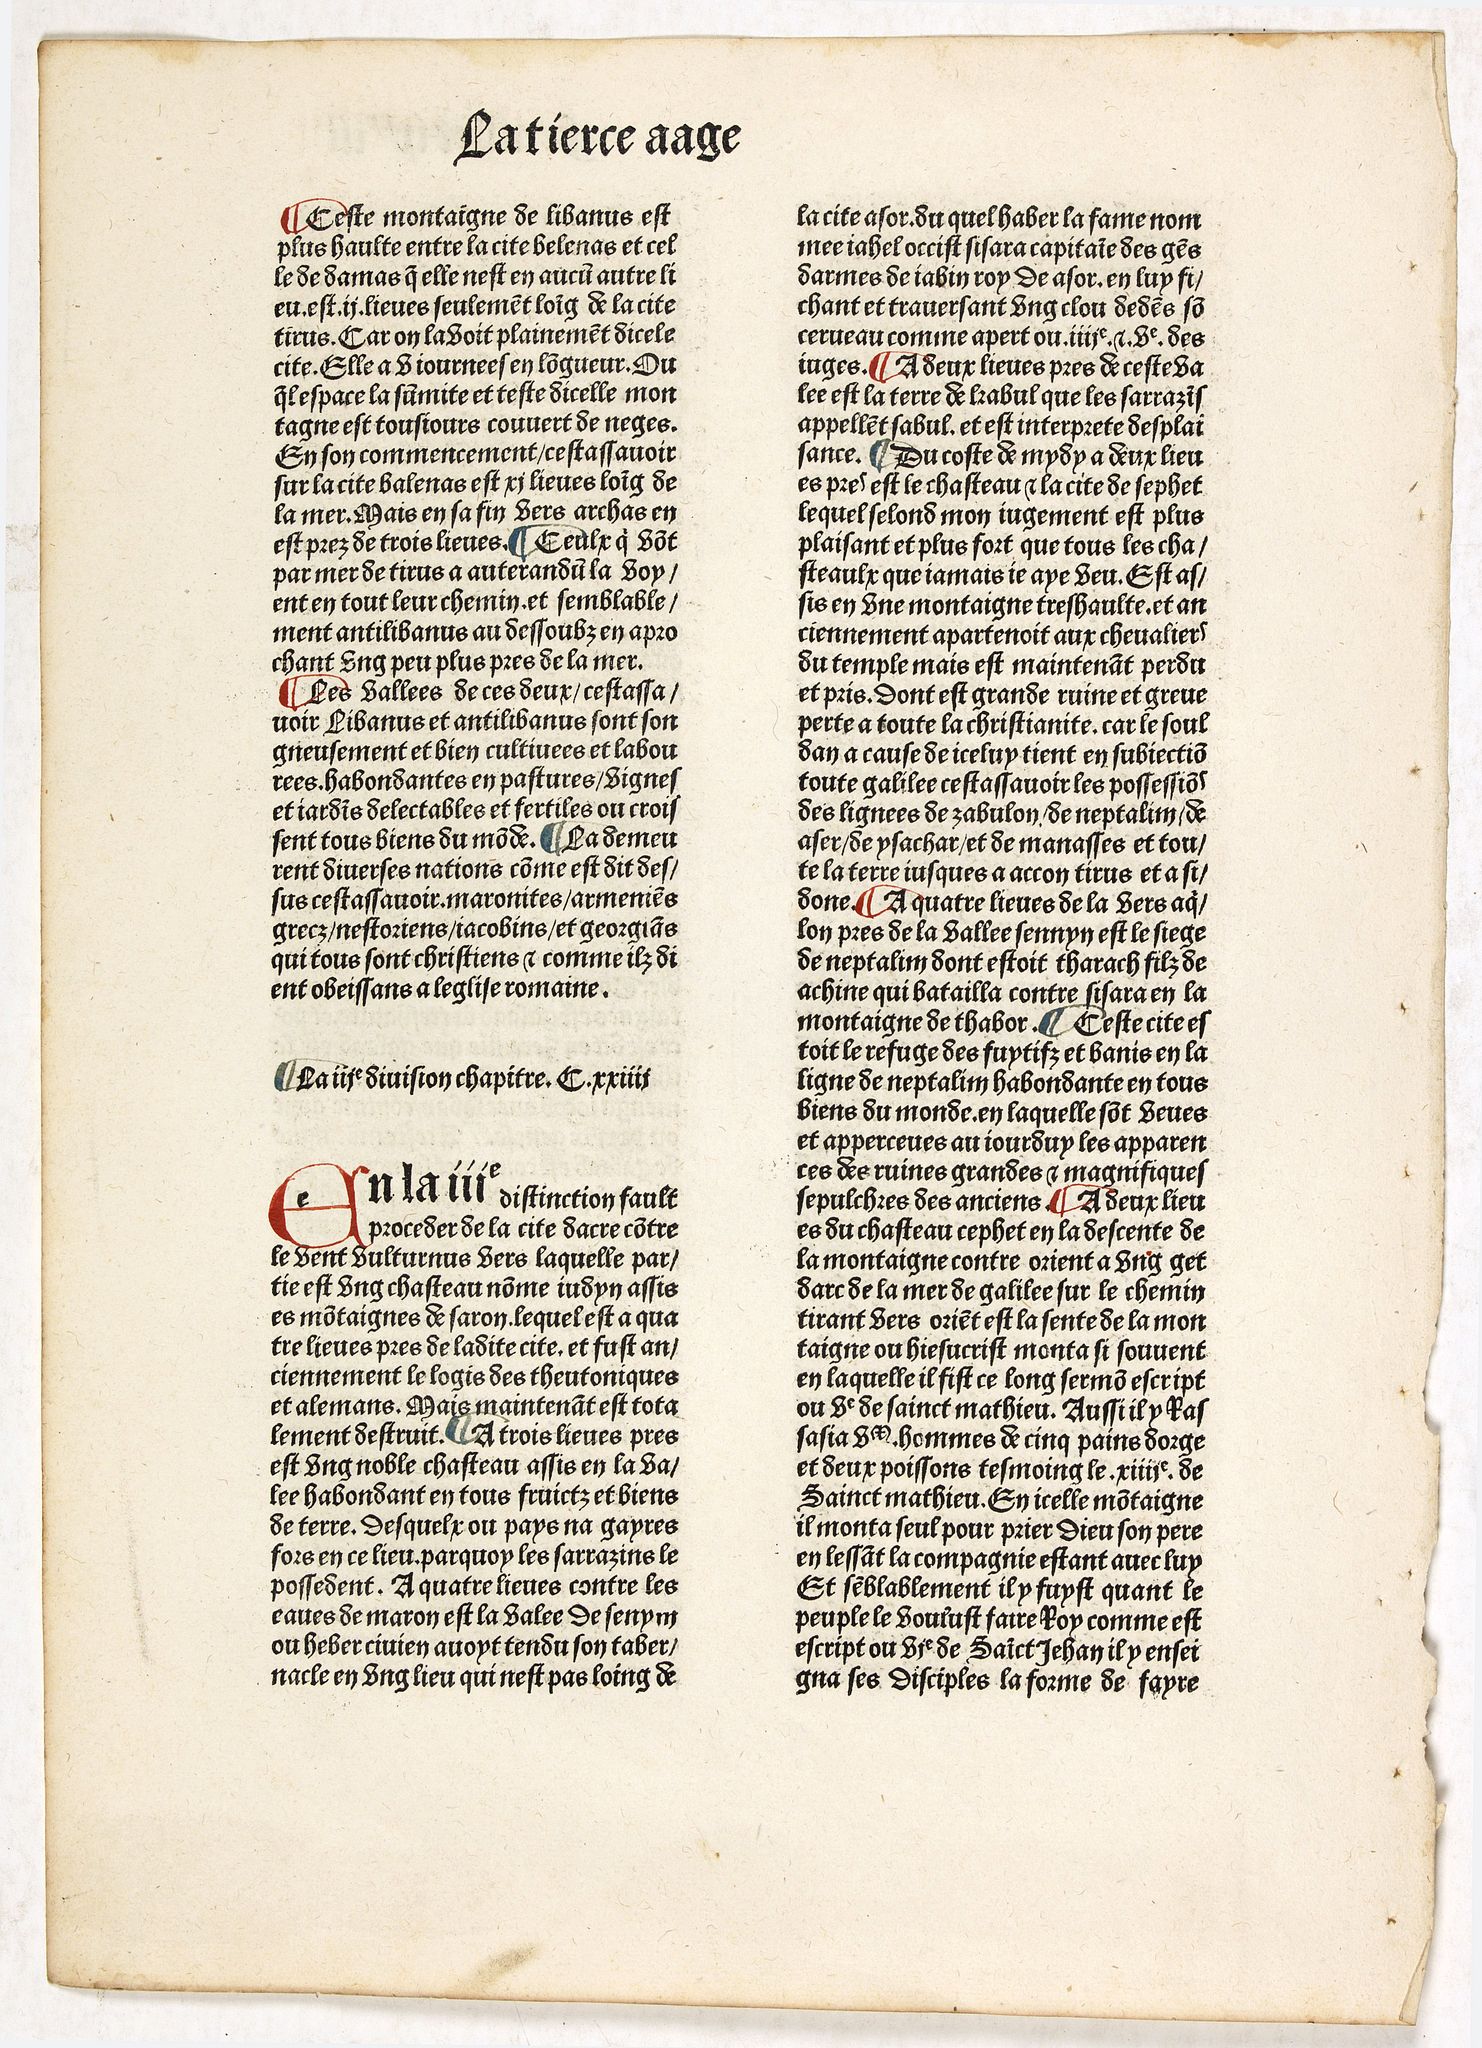 La tierce aage
¶ Ceste montaigne de libanus est
plus haulte entre la cite belenas et cel
le de damas q̄ elle nest en aucū autre li
eu.est.ij.lieues seulemēt loīg de la cite
tirus. Car on la voit plainemēt dicele
cite. Elle a v iournees en lōgueur. Ou
q̄l espace la sūmite et teste dicelle mon
tagne est tousiours couuert de neges.
En son commencement/cestassauoir
sur la cite balenas est xj lieues loīg de
la mer. Mais en sa fin vers archas en
est prez de trois lieues. ¶ Ceulx q̇ vōt
par mer de tirus a auterandū la voy/
ent en tout leur chemin.et semblable/
ment antilibanus au dessoubz en apro
chant vng peu plus pres de la mer.
¶ Les vallees de ces deux/cestassa/
uoir Libanus et antilibanus sont son
gneusement et bien cultiuees et labou
rees.habondantes en pastures/vignes
et iardīs delectables et fertiles ou crois
sent tous biens du mōde. ¶ La demeu
rent diuerses nations cōme est dit des/
sus cestassauoir.maronites/armeniēs
grecz/nestoriens/iacobins/et georgiās
qui tous sont christiens ⁊ comme ilz di
ent obeissans a leglise romaine.
¶ La iijᵉ diuision chapitre. C.xxiiij
En la iiiᵉ distinction fault
proceder de la cite dacre cōtre
le vent vulturnus vers laquelle par/
tie est vng chasteau nōme iudyn assis
es mōtaignes de saron.lequel est a qua
tre lieues pres de ladite cite. et fust an/
ciennement le logis des theutoniques
et alemans. Mais maintenāt est tota
lement destruit. ¶ A trois lieues pres
est vng noble chasteau assis en la va/
lee habondant en tous fruictz et biens
de terre. Desquelx ou pays na gayres
fors en ce lieu.parquoy les sarrazins le
possedent. A quatre lieues contre les
eaues de maron est la valee De senym
ou heber ciuien auoyt tendu son taber/
nacle en vng lieu qui nest pas loing de
la cite asor.du quel haber la fame nom
mee iahel occist sisara capitaīe des gēs
darmes de iabin roy De asor. en luy fi/
chant et trauersant vng clou dedēs sō
cerueau comme apert ou.iiijᵉ.⁊.vᵉ. des
iuges. ¶ A deux lieues pres de ceste va
lee est la terre de krabul que les sarrazīs
appellēt sabul. et est interprete desplai
sance. ¶ Du coste de mydy a deux lieu
es pres est le chasteau ⁊ la cite de sephet
lequel selond mon iugement est plus
plaisant et plus fort que tous les cha/
steaulx que iamais ie aye veu. Est as/
sis en vne montaigne treshaulte.et an
ciennement apartenoit aux cheualiers
du temple mais est maintenāt perdu
et pris. Dont est grande ruine et greue
perte a toute la christianite. car le soul
dan a cause de iceluy tient en subiectiō
toute galilee cestassauoir les possessiōs
des lignees de zabulon/de neptalim/de
aser/de ysachar/et de manasses et tou/
te la terre iusques a accon tirus et a si/
done. ¶ A quatre lieues de la vers aq̇/
lon pres de la vallee sennyn est le siege
de neptalim dont estoit tharach filz de
achine qui batailla contre sisara en la
montaigne de thabor. ¶ Ceste cite es
toit le refuge des fuytifz et banis en la
ligne de neptalim habondante en tous
biens du monde.en laquelle sōt veues
et apperceues au iourduy les apparen
ces des ruines grandes ⁊ magnifiques
sepulchres des anciens. ¶ A deux lieu
es du chasteau cephet en la descente de
la montaigne contre orient a vng get
darc de la mer de galilee sur le chemin
tirant vers oriēt est la sente de la mon
taigne ou hiesucrist monta si souuent
en laquelle il fist ce long sermō escript
ou vᵉ de sainct mathieu. Aussi il y Ras
sasia vᵐ.hommes de cinq pains dorge
et deux poissons tesmoing le .xiiijᵉ. de
Sainct mathieu. En icelle mōtaigne
il monta seul pour prier Dieu son pere
en lessāt la compagnie estant auec luy
Et sēblablement il y fuyst quant le
peuple le voulust faire Roy comme est
escript ou vjᵉ de Saīct Jehan il y ensei
gna ses Disciples la forme de fayre